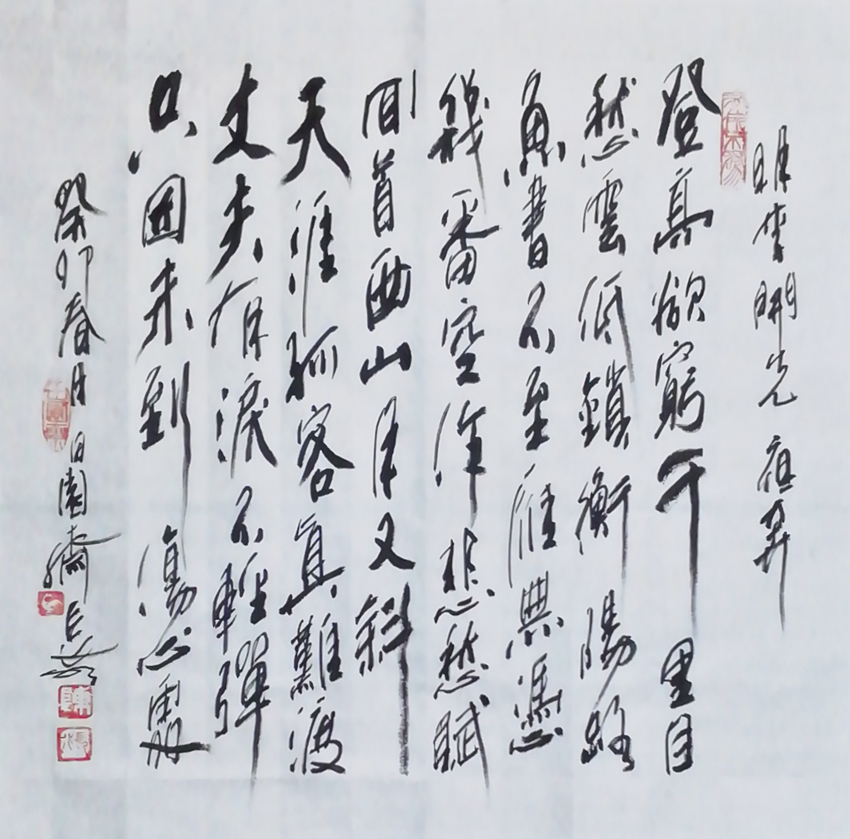 明李開先夜奔
登高欲窮千里目
愁雲低鎖衡陽路
魚書不至雁無憑
幾番空作悲愁賦
回首西山月又斜
天涯孤客真難渡
丈夫有淚不輕彈
只因未到傷心處
癸卯春月日園齋
陳